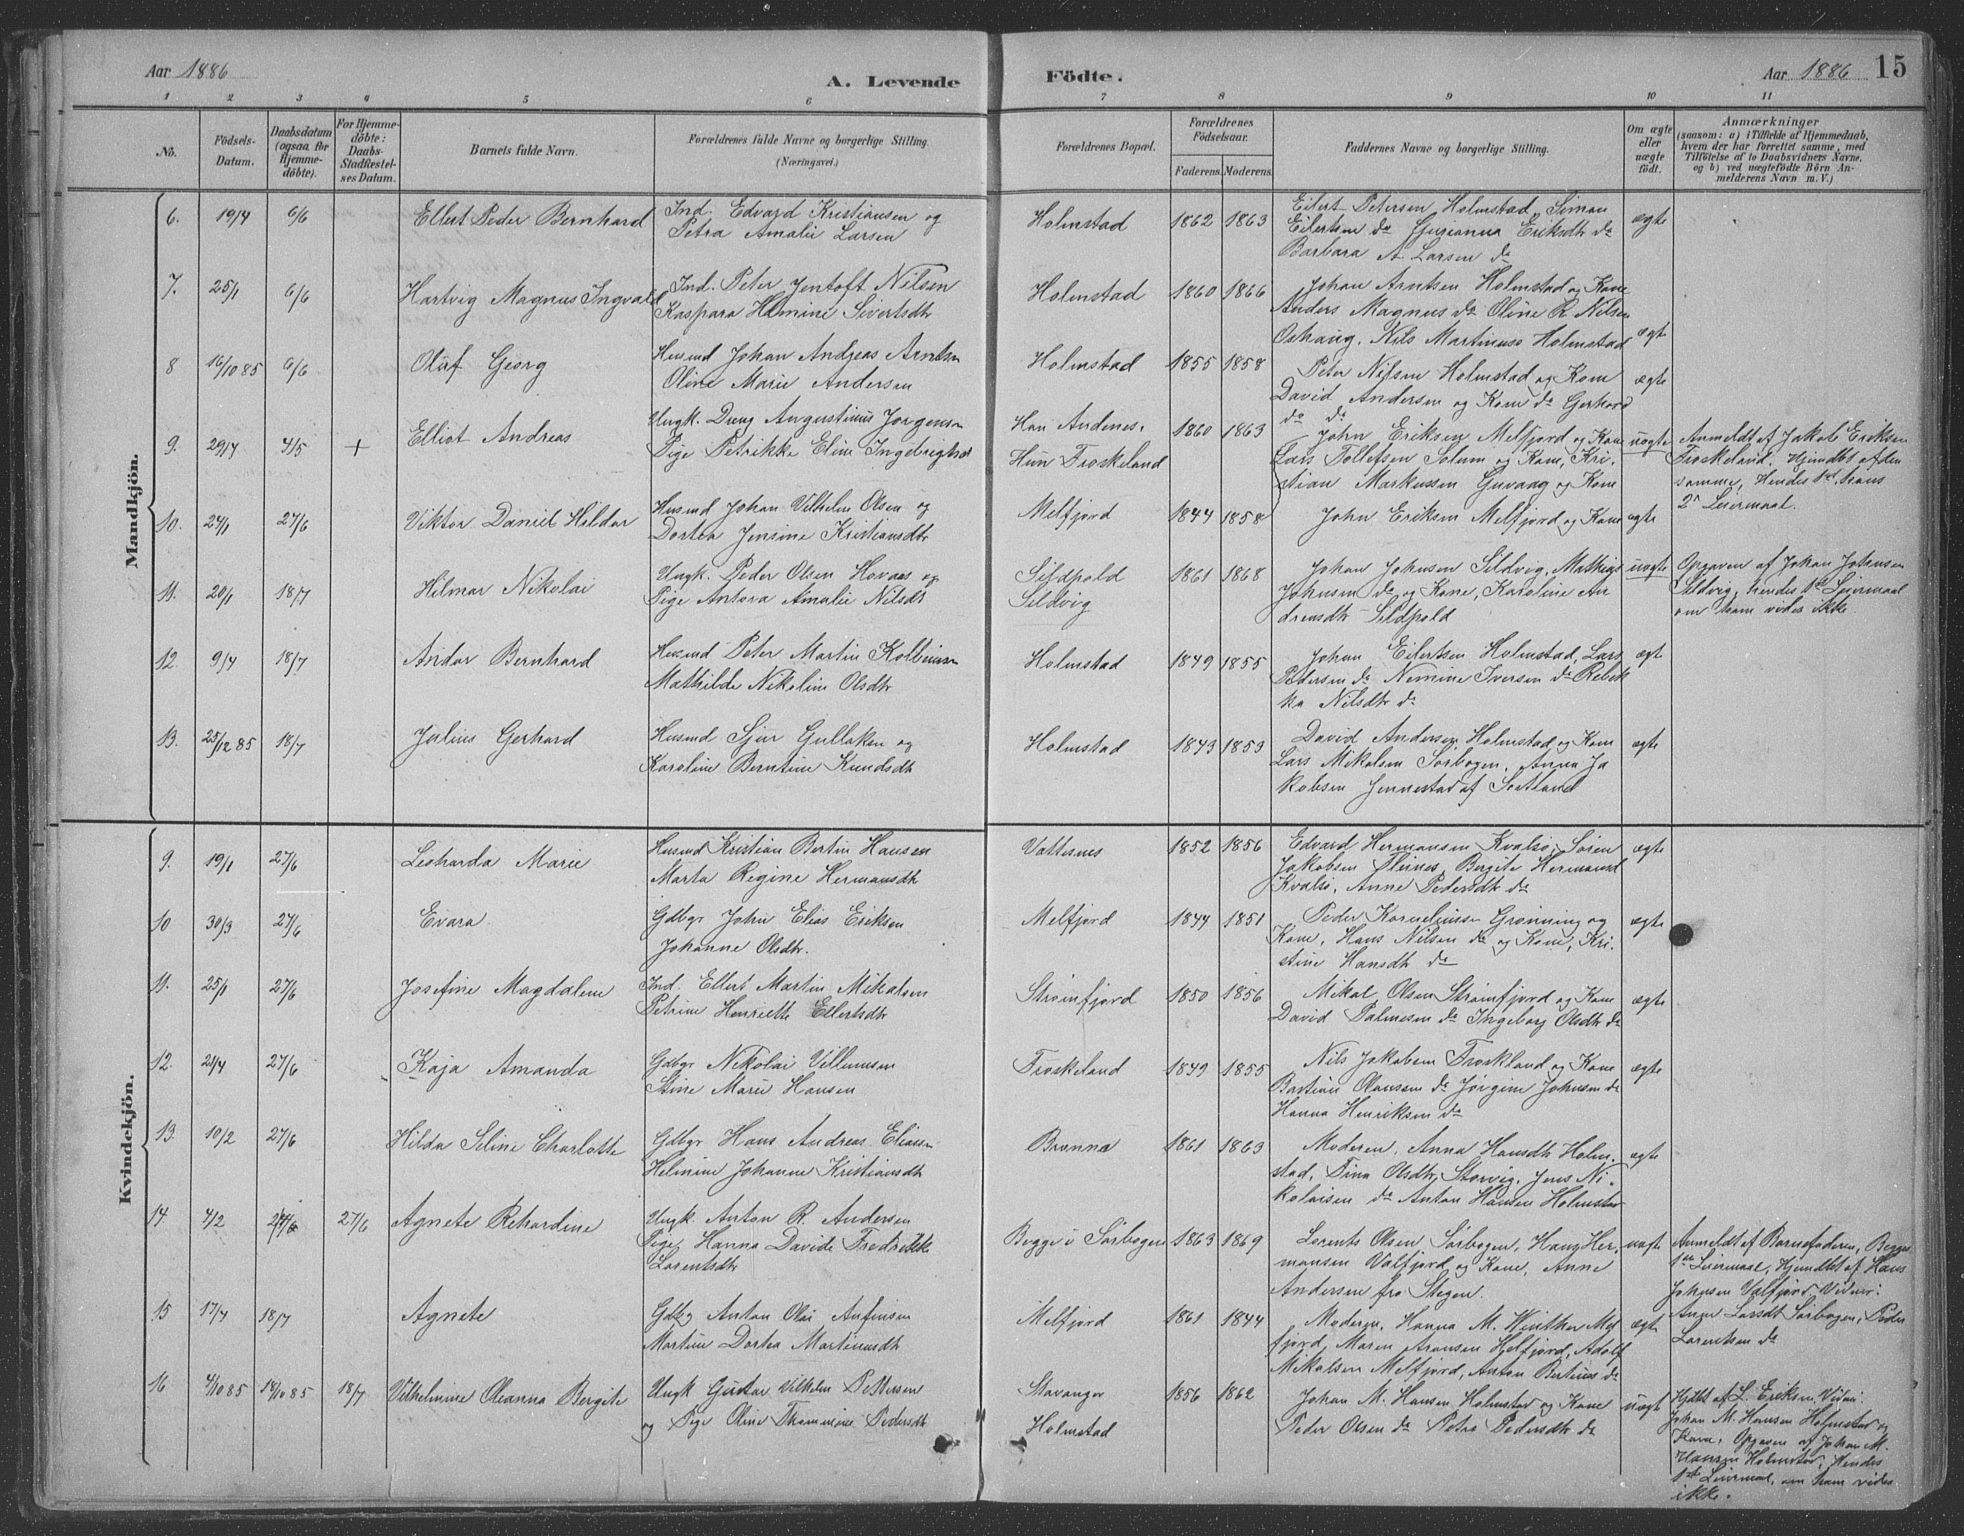 Aar 1886
A. Levende
Födte.
Aar 1886
15
1 2 3 4 5 6 7 8 9 10 11
No.
Födsels-Datum.
Daabsdatum (ogsaa for Hjemme-döbte).
For Hjemme-döbte: Daabs-Stadfæstel-ses Datum.
Barnets fulde Navn.
Forældrenes fulde Navne og borgerlige Stilling. (Næringsvei.)
Forældrenes Bopæl.
Forældrenes Födselsaar.
Faderens. Moderens.
Faddernes Navne og borgerlige Stilling.
Om ægte eller uægte födt.
Anmærkninger
(saasom: a) i Tilfælde af Hjemmedaab, hvem der har forrettet samme, med Tilföielse af to Daabsvidners Navne, og b) ved uægtefödte Börn Anmelderens Navn m. V.)
Mandkjön.
6. 19/4 6/6 Ellert Peder Bernhard
Ind. Edvard Kristiansen og
Petra Amalie Larsen
Holmstad 1862 1863
Eilert Petersen Holmstad, Simon
Eilertsen do Eriksdtr do
Barbara A. Larsen do
ægte
7. 25/1 6/6 Hartvig Magnus Ingvald
Ind. Peter Jentoft Nilsen
Kaspara Sivertsdtr
Holmstad 1860 1866
Johan Arntsen Holmstad og Kone
Anders Magnus do Oline R. Nilsen
Nils Martinuss Holmstad
ægte
8 16/10 85 6/6 Olaf Georg
Husmd Johan Andreas Arntsen
Oline Marie Andersen
Holmstad 1855 1858
Peter Nilsen Holmstad og Kone
David Andersen og Kone do Gerhard
do do
ægte
9. 29/4 4/5 + Elliot Andreas
Ungk. Augustinus Jorgensen
Pige Petrikke Eline
Han Andenes.
Hun Froskeland
1860 1863
John Eriksen Melfjord og Kone
Lars Tollefsen Solum og Kone, Kri-
stian Markussen Guvaag og Kone
uægte
Anmeldt af Jakob Eriksen
Froskeland. Hjmdbt af den
samme, Hendes 1ste, hans
2det Leiermaal.
10. 24/1 27/6 Viktor Daniel Hildor
Husmd Johan Vilhelm Olsen og
Dortea Jensine Kristiansdtr
Melfjord 1844 1858
John Eriksen Melfjord og Kone
ægte
11. 20/1 18/7 Hilmar Nikolai
Ungk. Peder Olsen Hovaas og
Pige Antora Amalie Nilsdtr
Sildpold
Sildvig
1861 1868
Johan Johnsen Sildvig, Mathias
Johnsen do og Kone, Karoline An
drensdtr Sildpold
uægte
Opgaven af Johan Johnsen
Sildvig, hendes 1ste Leiermaal
om ham vides ikke
12. 9/4 18/7 Andor Bernhard
Husmd Peter Martin Kolbeinsen
Mathilde Nikoline Olsdtr
Holmstad 1849 1855
Johan Eilertsen Holmstad, Lars
Pedersen do Nemine Iversen do Rebek
ka Nilsdtr do
ægte
13. 25/12 85 18/7 Julius Gerhard
Husmd Sjur Gullaksen og
Karoline Berntine Knudsdtr
Holmstad 1843 1853
David Andersen Holmstad og Kone
Lars Mikalsen Sørbogen, Anna Ja
kobsen Jennestad af Sortland
ægte
Kvindekjön.
9. 19/1 27/6 Leonarda Marie
Husmd Kristian Bertin Hansen
Marta Regine Hermansdtr
Vottesnes 1852 1856
Edvard Hermansen Kvalsø, Søren
Jakobsen Bergite Hermansd
Kvalsø, Anne Pedersdtr do
ægte
10 30/3 27/6 Evara
Gdbgr John Elias Eriksen
Johanne Olsdtr.
Melfjord 1844 1851
Peder Korneliussen Grønning og
Kone, Hans Nilsen do og Kone, Kri-
stine Hansdtr do
ægte
11. 25/1 27/6 Josefine Magdalene
Ind. Ellert Martin Mikalsen
Petrine Henriette Ellertsdtr
Strømfjord 1850 1856
Mikal Olsen Strømfjord og Kone
David Palmesen do Ingeborg Olsdtr do
ægte
12. 21/4 27/6 Kaja Amanda
Gdbgr Nikolai Villumsen
Stine Marie Hansen
Froskeland 1849 1855
Nils Jakobsen Froskland og Kone
Bastian Olaussen do Jørgine Johnsen do
Hanna Henriksen do
ægte
13. 10/2 27/6 Hilda Seline Charlotte
Gdbgr Hans Andreas Eliassen
Helmine Johanne Kristiansdtr
Brønna 1861 1863
Moderen, Anna Hansdtr Holm-
stad, Tina Olsdtr, Storvig, Jens Ni-
kolaisen do Anton Hansen Holmstad
ægte
14. 4/2 27/6 Agnete Rehardine
Ungk. Anton R. Andersen
Pige, Hanna Davide Fredrikke
Lorentsdtr
Begge i Sørbogen 1863 1869
Lorents Olsen Sørbogen, Hans Her-
mansen Valfjord og Kone, Anne
Andersen fra Stegen.
uægte
Anmeldt af Barnefaderen, Begges
1ste Leiermaal, Hjmdbt af Hans
Johnsen Valfjord, Vidner:
Anne Larsdt Sørbogen, Peder
Lorentsen do
15 17/4 18/7 Agnete
Gdbgr Anton Olai Anfinsen
Martine Dortea Martinusdtr
Melfjord 1861 1844
Moderen, Hanna M. Winther Mel
fjord, Maren Aronsen Melfjord, Adolf
Mikalsen Melfjord, Anton Berteus do
ægte
16 4/10 85 14/10 85 18/7 Vilhelmine Oleanna Bergite
Ungk Gustav Vilhelm Pettersen
og Pige Oline Thommine Pedersdtr
Stavanger
Holmstad
1856 1862
Johan M. Hansen Holmstad og Kone
Peder Olsen do Petra Pedersdtr do
uægte
Hjdbt af L. Eriksen, Vidner:
Johan M. Hansen Holmstad og
Kone. Opgaven af Johan M.
Hansen Holmstad, Hendes
1ste Leiermaal, om ham vides
ikke.